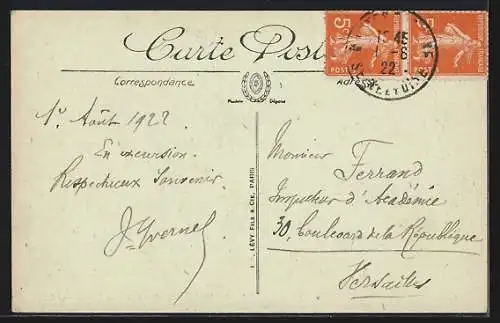 Carte Postale
Correspondance
Adresse
Modèle Déposé
5c
POSTES
15 45
1 - 8
22
SEINE ET OISE
1er Août 1922
En excursion.
Respectueux Souvenir
J. Yvernel
LÉVY FILS & CIE, PARIS
Monsieur Ferrand
Inspecteur d'Académie
30, boulevard de la République
Versailles